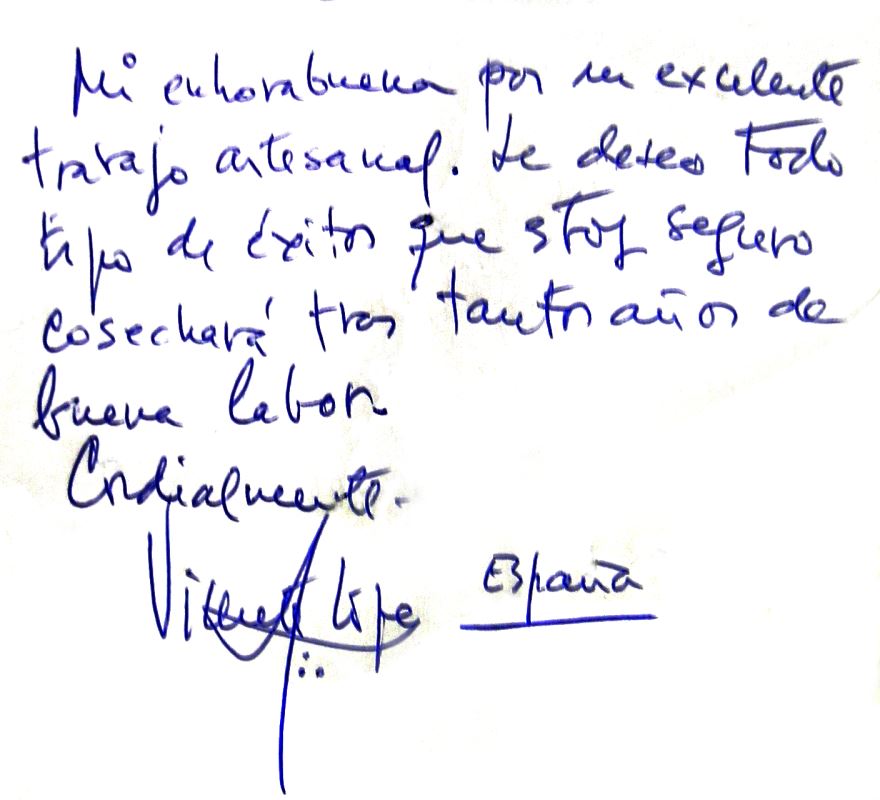 Mi enhorabuena por su excelente
trabajo artesanal. Le deseo Todo
tipo de éxitos que estoy seguro
cosechará tras tantos años de
buena labor
Cordialmente.
Vicente España